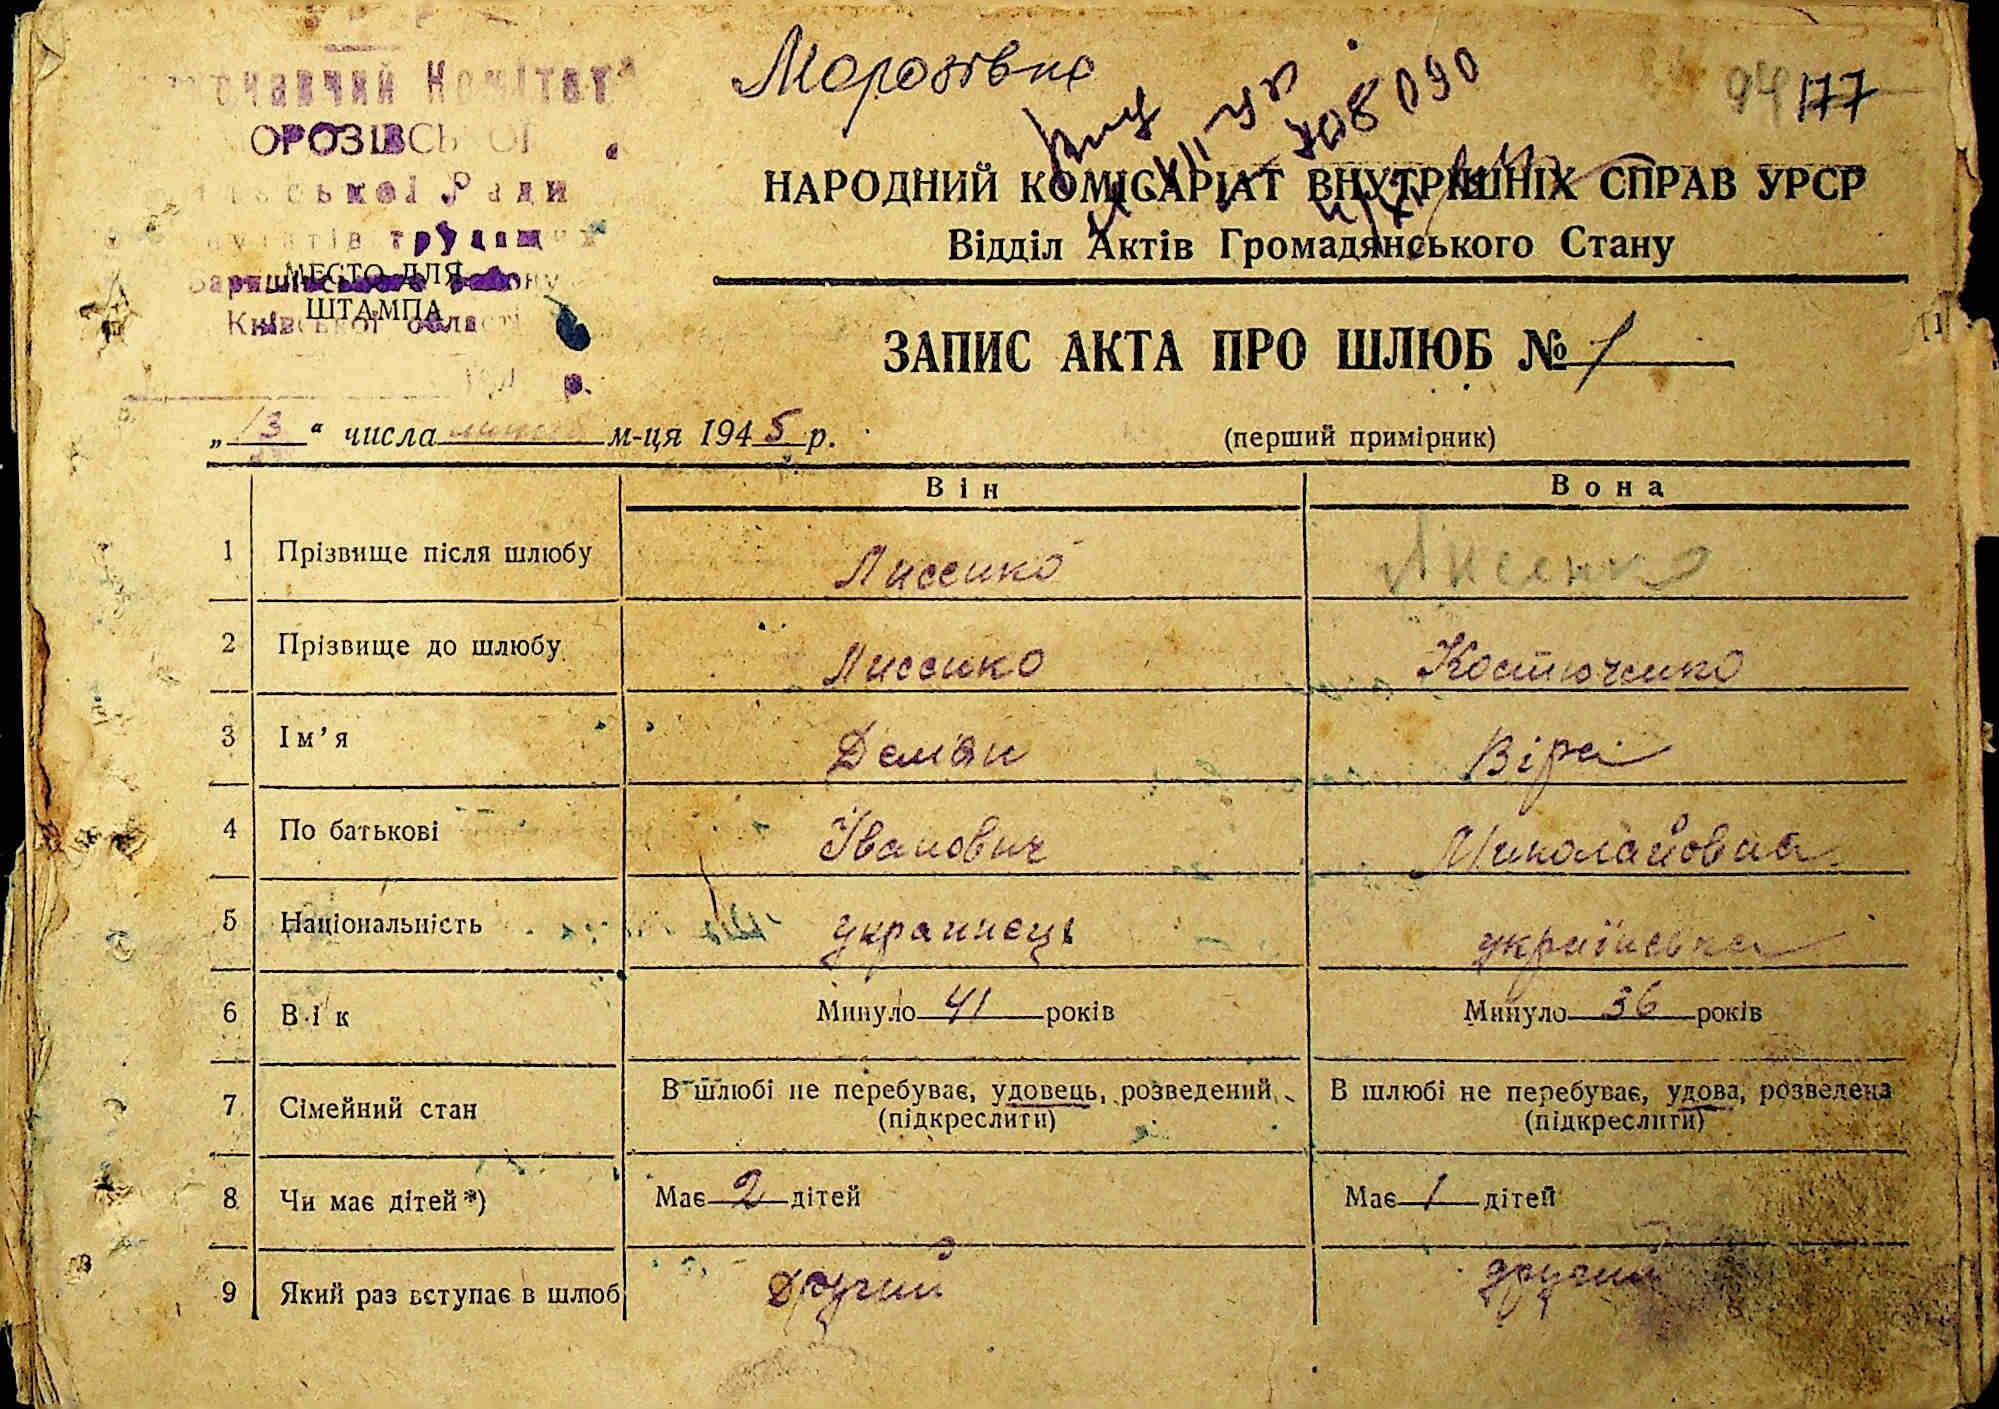 Морозівка
94 177
708090
Комітет
ОРОЗІВСЬ
Ради
трудящ
МЕСТО ДЛЯ
ШТАМПА
Київської області
р.
НАРОДНИЙ КОМІСАРІАТ ВНУТРІШНІХ СПРАВ УРСР
Відділ Актів Громадянського Стану
ЗАПИС АКТА ПРО ШЛЮБ № 1
„13“ числа м-ця 1945 р.
(перший примірник)
Він Вона
1 Прізвище після шлюбу Лисенко Лисенко
2 Прізвище до шлюбу Лисенко Костюченко
3 Ім’я Дем'ян Віра
4 По батькові Іванович Миколайовна
5 Національність українець українська
6 Вік Минуло 41 років Минуло 36 років
7 Сімейний стан В шлюбі не перебуває, удовець, розведений (підкреслити) В шлюбі не перебуває, удова, розведена (підкреслити)
8 Чи має дітей*) Має 2 дітей Має 1 дітей
9 Який раз вступає в шлюб Другий другий